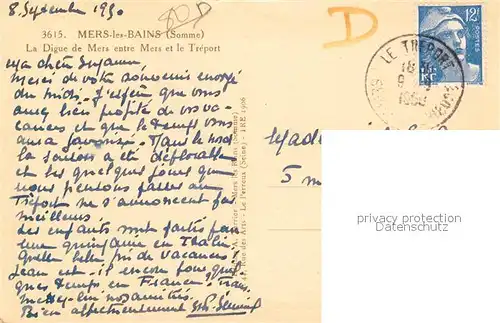 8 Septembre 1950
80D
D
3615. MERS-les-BAINS (Somme)
La Digue de Mers entre Mers et le Tréport
12F
POSTES
LE TREPORT
18
1950
Ma chère Suzanne,
Merci de votre souvenir envoyé
du midi. J'espère que vous
avez bien profité de vos va-
cances et que le temps vous
aura favorisé. Dans le nord
la saison a été déplorable
et les quelques jours que
nous pensons passer au
Tréport ne s'annoncent pas
meilleurs
Les enfants sont partis pour
une quinzaine en Italie.
Quelle belle vie de vacances
Jean est-il encore pour quel-
ques temps en France. Trans-
mettez-lui nos amitiés.
Bien affectueusement
Mada
5
Mers-les-Bains (Somme)
Rue des Arts - Le Perreux (Seine)
Protected by Copyright
PreVIEW
www.delcampe